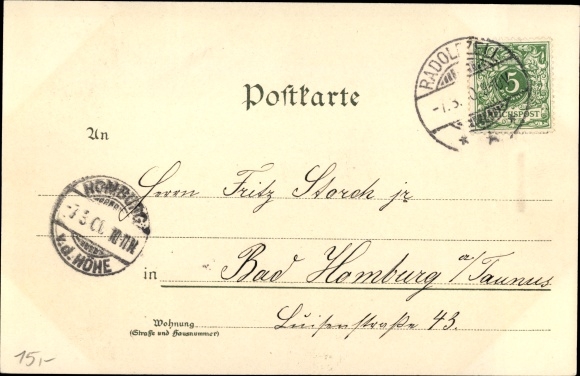 RADOLFZELL
-7.3.
5
REICHSPOST
Postkarte
An
Herrn Fritz Storch jr
HOMBURG
-7.3.01. 10-11N.
v.d. HÖHE
in Bad Homburg a/Taunus
Wohnung Luisenstraße 43.
(Straße und Hausnummer)
15,-